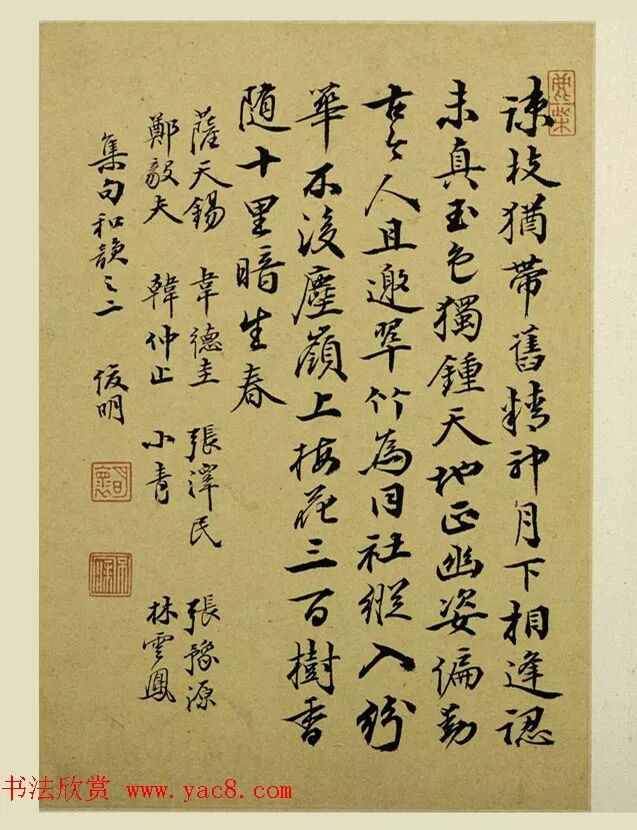 鹿柴
疎枝猶帶舊精神月下相逢認
未真玉色獨鍾天地正幽姿偏動
古今人且邀翠竹為同社縱入紛
華不塵嶺上梅花三百樹香
随十里暗生春
薩天錫 韋德圭 張澤民 張豫源
鄭毅夫 韓仲止 小青 林雲鳳
集句和韻之二 俊明
书法欣赏 www.yac8.com